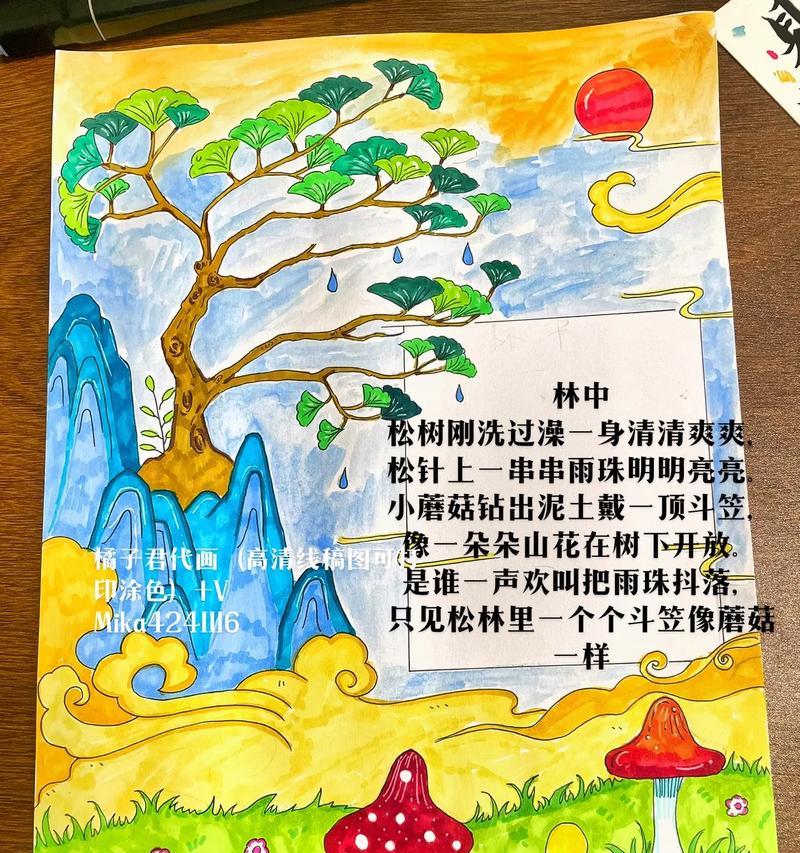 林中
松树刚洗过澡一身清清爽爽,
松针上一串串雨珠明明亮亮。
小蘑菇钻出泥土戴一顶斗笠,
像一朵朵山花在树下开放。
是谁一声欢叫把雨珠抖落,
只见松林里一个个斗笠像蘑菇
一样
橘子君代画（高清线稿图可打
印涂色）+V
Mika4241116